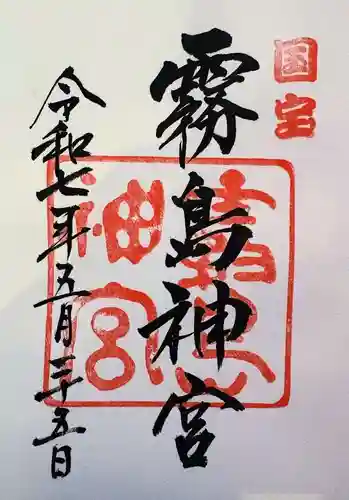 国宝
霧島神宮
霧島神宮
令和七年五月二十五日